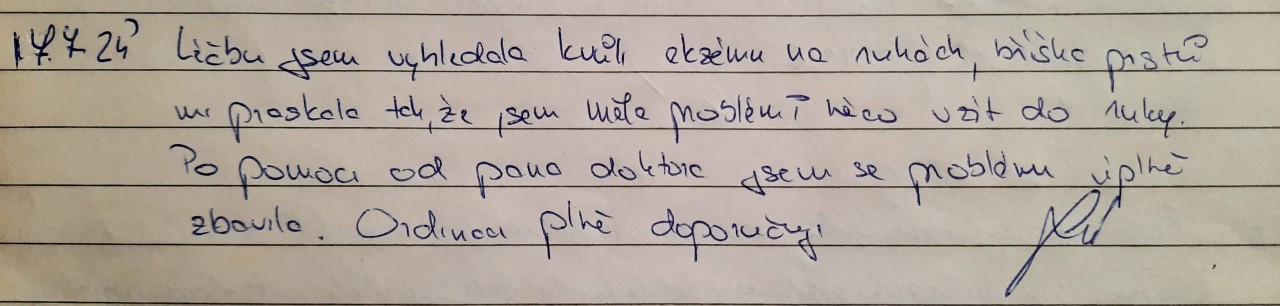 17.7.24 Léčbu jsem vyhledala kvůli ekzému na rukách, bříška prstů
mi praskala tak, že jsem měla problém i něco vzít do ruky.
Po pomoci od pana doktora jsem se problému úplně
zbavila. Ordinaci plně doporučuji